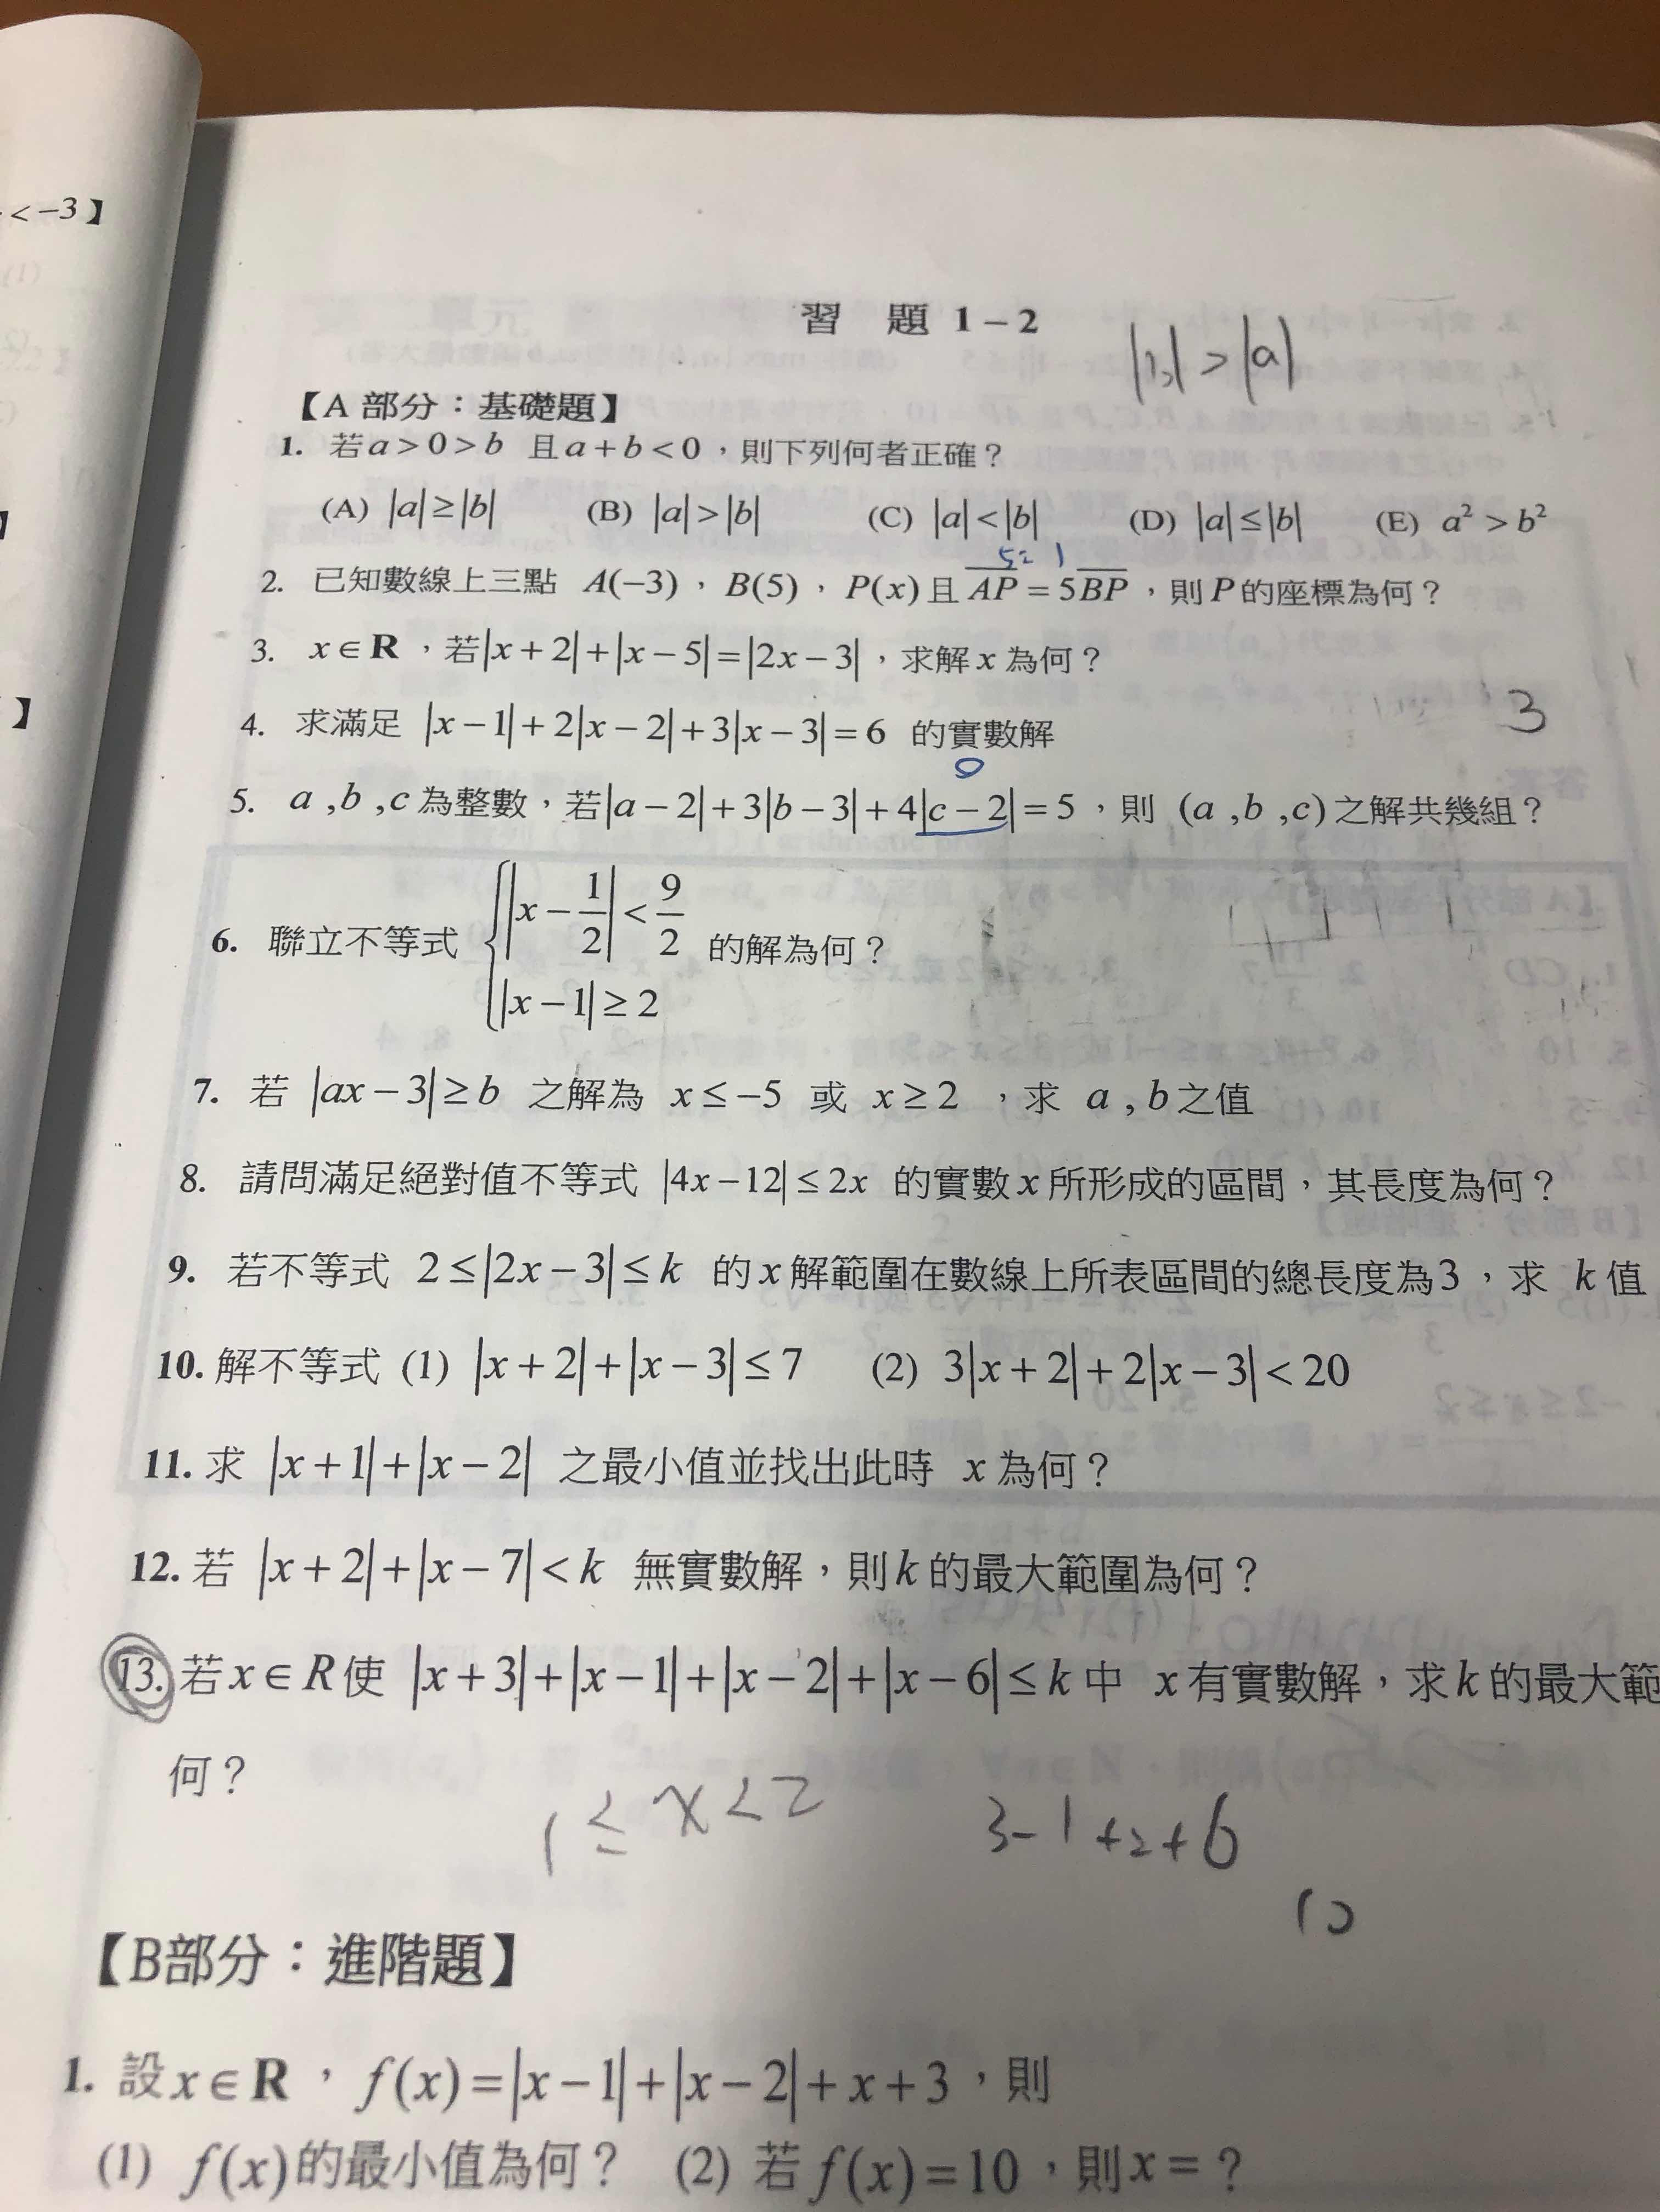 < -3】
】
習 題 1-2
|b| > |a|
【A 部分：基礎題】
1. 若 a > 0 > b 且 a + b < 0，則下列何者正確？
(A) |a| ≥ |b| (B) |a| > |b| (C) |a| < |b| (D) |a| ≤ |b| (E) a² > b²
5 = 1
2. 已知數線上三點 A(-3)，B(5)，P(x) 且 \overline{AP} = 5\overline{BP}，則 P 的座標為何？
3. x ∈ R，若|x + 2| + |x - 5| = |2x - 3|，求解 x 為何？
4. 求滿足 |x - 1| + 2|x - 2| + 3|x - 3| = 6 的實數解
3
0
5. a , b , c 為整數，若|a - 2| + 3|b - 3| + 4|c - 2| = 5，則 (a , b , c) 之解共幾組？
6. 聯立不等式 { |x - 1/2| < 9/2 的解為何？
|x - 1| ≥ 2
7. 若 |ax - 3| ≥ b 之解為 x ≤ -5 或 x ≥ 2 ，求 a , b 之值
8. 請問滿足絕對值不等式 |4x - 12| ≤ 2x 的實數 x 所形成的區間，其長度為何？
9. 若不等式 2 ≤ |2x - 3| ≤ k 的 x 解範圍在數線上所表區間的總長度為3，求 k 值
10. 解不等式 (1) |x + 2| + |x - 3| ≤ 7 (2) 3|x + 2| + 2|x - 3| < 20
11. 求 |x + 1| + |x - 2| 之最小值並找出此時 x 為何？
12. 若 |x + 2| + |x - 7| < k 無實數解，則 k 的最大範圍為何？
13. 若 x ∈ R 使 |x + 3| + |x - 1| + |x - 2| + |x - 6| ≤ k 中 x 有實數解，求 k 的最大範
何？
1 ≤ x < 2
3 - 1 + 2 + 6
10
【B部分：進階題】
1. 設 x ∈ R，f(x) = |x - 1| + |x - 2| + x + 3，則
(1) f(x) 的最小值為何？ (2) 若 f(x) = 10，則 x = ？